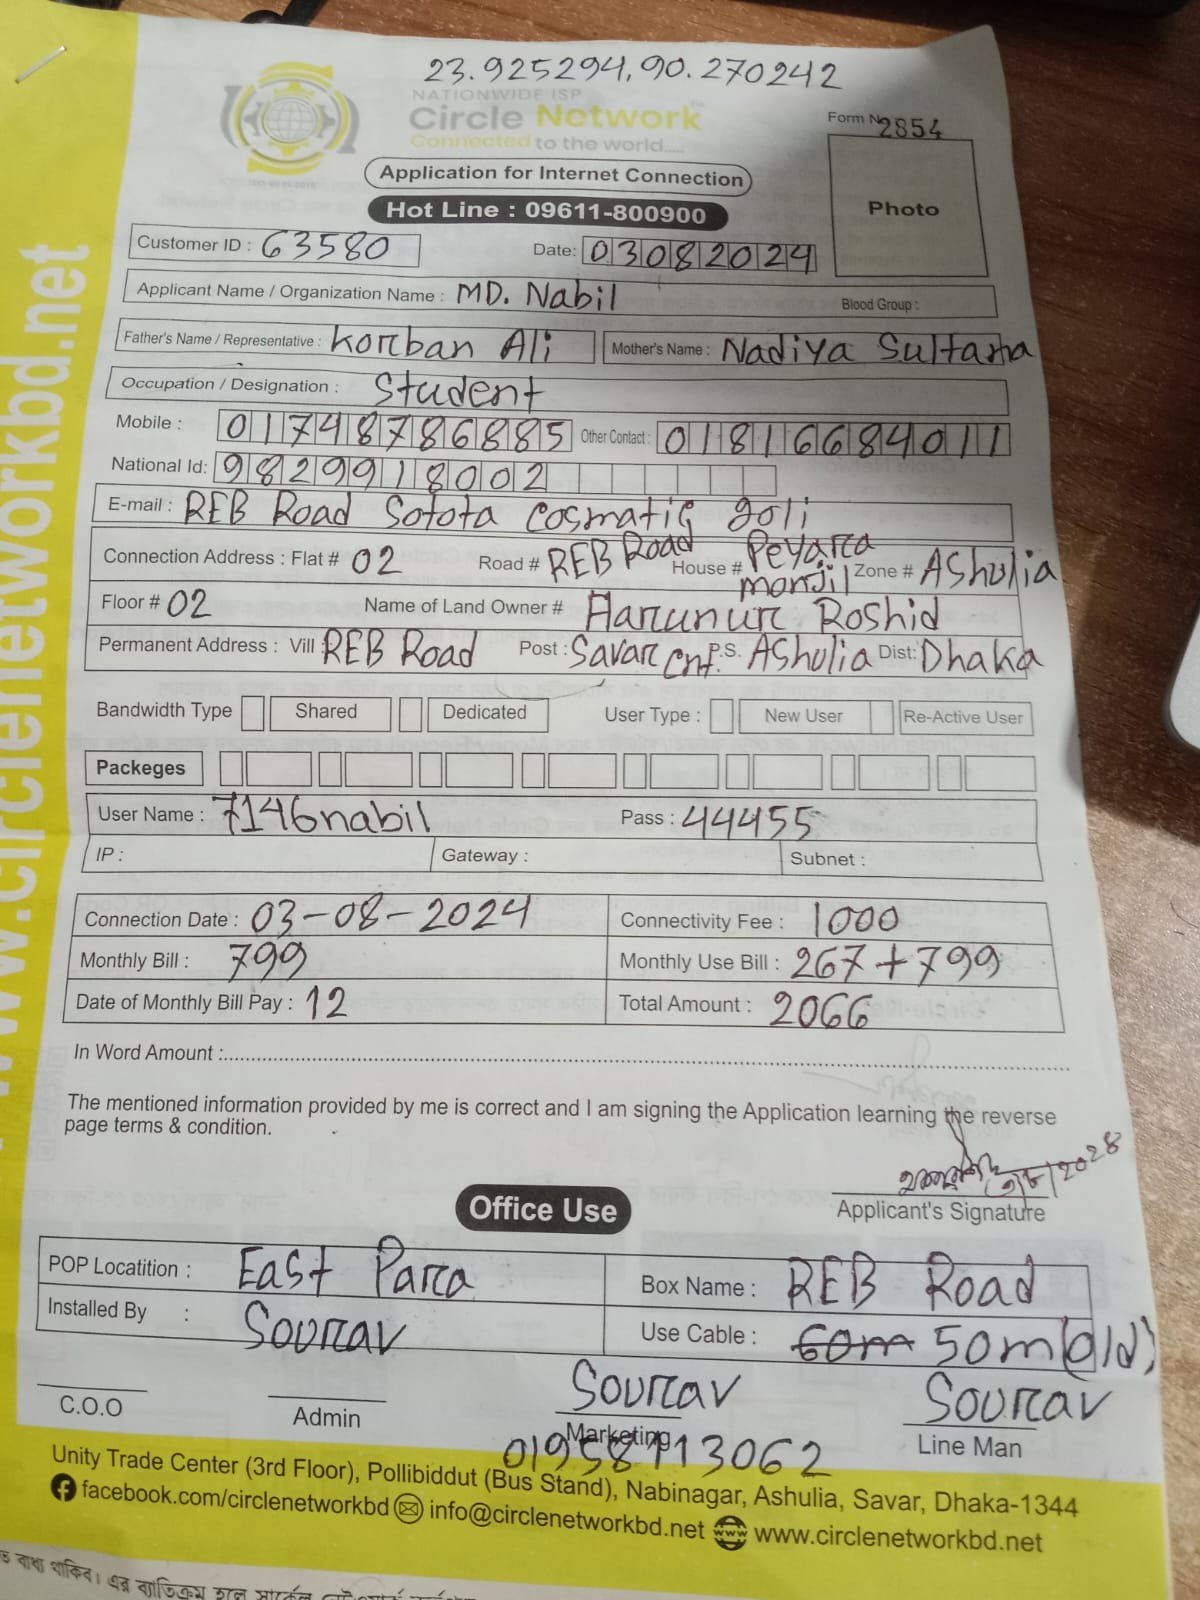 23.925294, 90.270242
NATIONWIDE ISP
Circle Network
Connected to the world.....
Form No 2854
Application for Internet Connection
Photo
Hot Line : 09611-800900
Customer ID : 63580 Date: 03082024
Applicant Name / Organization Name : MD. Nabil Blood Group :
Father's Name / Representative : Korban Ali Mother's Name : Nadiya Sultana
Occupation / Designation : Student
Mobile : 01748786885 Other Contact : 01816684011
National Id: 9829918002
E-mail : REB Road Sotota Cosmatic goli
Connection Address : Flat # 02 Road # REB Road House # Peyara monjil Zone # Ashulia
Floor # 02 Name of Land Owner # Harunur Roshid
Permanent Address : Vill : REB Road Post : Savar Cnt. P.S. Ashulia Dist: Dhaka
Bandwidth Type Shared Dedicated User Type : New User Re-Active User
Packeges
User Name : 7146nabil Pass : 44455
IP : Gateway : Subnet :
Connection Date : 03-08-2024 Connectivity Fee : 1000
Monthly Bill : 799 Monthly Use Bill : 267+799
Date of Monthly Bill Pay : 12 Total Amount : 2066
In Word Amount :
The mentioned information provided by me is correct and I am signing the Application learning the reverse
page terms & condition.
Applicant's Signature
Office Use
POP Locatition : East Para Box Name : REB Road
Installed By : Sourav Use Cable : 60m 50m(old)
Sourav Sourav
C.O.O Admin Marketing Line Man
01958113062
Unity Trade Center (3rd Floor), Pollibiddut (Bus Stand), Nabinagar, Ashulia, Savar, Dhaka-1344
facebook.com/circlenetworkbd info@circlenetworkbd.net www.circlenetworkbd.net
www.circlenetworkbd.net
বাধ্য থাকিব। এর ব্যতিক্রম হলে সার্কেল